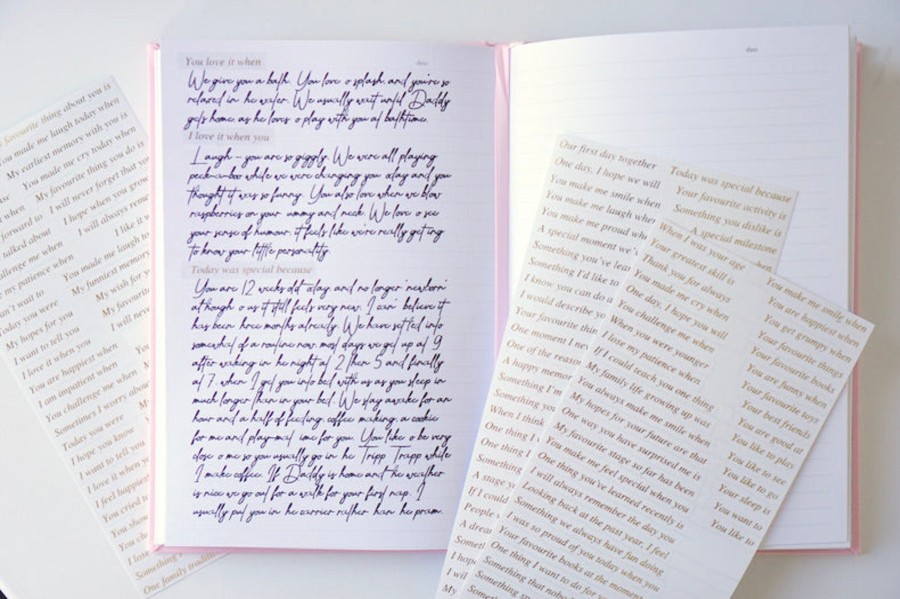 favourite thing about you is
You made me laugh today when
My earliest memory with you is
You made me cry today when
My favourite thing you do is
I will never forget that you
I hope when you grow
I will always reme
I like it w
forward to
talked about
challenge me when
my patience when
You made me laugh to
My funniest memory
My wish for yo
My favourite
I will neve
Today you were
My hopes for you
I want to tell you
I love it when you
You are happiest when
I am impatient when
You challenge me when
Sometimes I worry about
Today you were
I hope you know
I want to tell you
I love it when
I feel happiest
You cried to
One family traditi
You love it when
date
We give you a bath. You love o splash and you're so
relaxed in he water. We usually wait until Daddy
gets home as he loves o play with you at bathtime.
I love it when you
Laugh - you are so giggly. We were all playing
peek-a-boo while we were changing you oday and you
thought it was so funny. You also love when we blow
raspberries on your ummy and neck. We love o see
your sense of humour, it feels like we're really getting
to know your little personality.
Today was special because
You are 12 weeks old oday and no longer 'newborn'
although o us it still feels very new. I can' believe it
has been hree months already. We have settled into
somewhat of a routine now. most days we get up at 9
after waking in he night at 2 then 5 and finally
at 7 when I get you into bed with us as you sleep in
much longer than in your bed. We stay awake for an
hour and a half of feeding, coffee making, a cookie
for me and play-mat ime for you. You like o be very
close o me so you usually go in he Tripp Trapp while
I make coffee. If Daddy is home and he weather
is nice we go out for a walk for your first nap. I
usually put you in he carrier rather han he pram.
date
Our first day together
One day, I hope we will
You make me smile when
You make me laugh when
You make me proud wh
A special moment we'
Something you've lea
Something I'd like to
I know you can do a
I would describe yo
Your favourite thin
One moment I nev
One of the reason
A happy memor
Something I'm
Something you
When I think
One thing I
One thing
Something
A stage y
If I could
People
A drea
Somet
I hop
I wil
My
Today was special because
Your favourite activity is
Something you dislike is
A special milestone
When I was your age
Your greatest skill is
Thank you for always
You made me cry when
One day, I hope you will
You challenge me when
When you were younger
I lose my patience when
If I could teach you one thing
My family life growing up was
You always make me smile when
My hopes for your future are that
One way you have surprised me is
My favourite stage so far has been
You make me feel special when you
One thing you've learned recently is
I will always remember the day you
Looking back at the past year, I feel
Something we always have fun doing
I was so proud of you today when you
Your favourite books at the moment
One thing I want to do for
Something that nobo
Something
You make me smile when
You are happiest when
You get grumpy when
Your favourite things
Your favourite books
You are funny when
Your favourite toys
Your best friends
You are good at
You like to play
You like to see
You like to go
Your sleep is
You want to
You like to